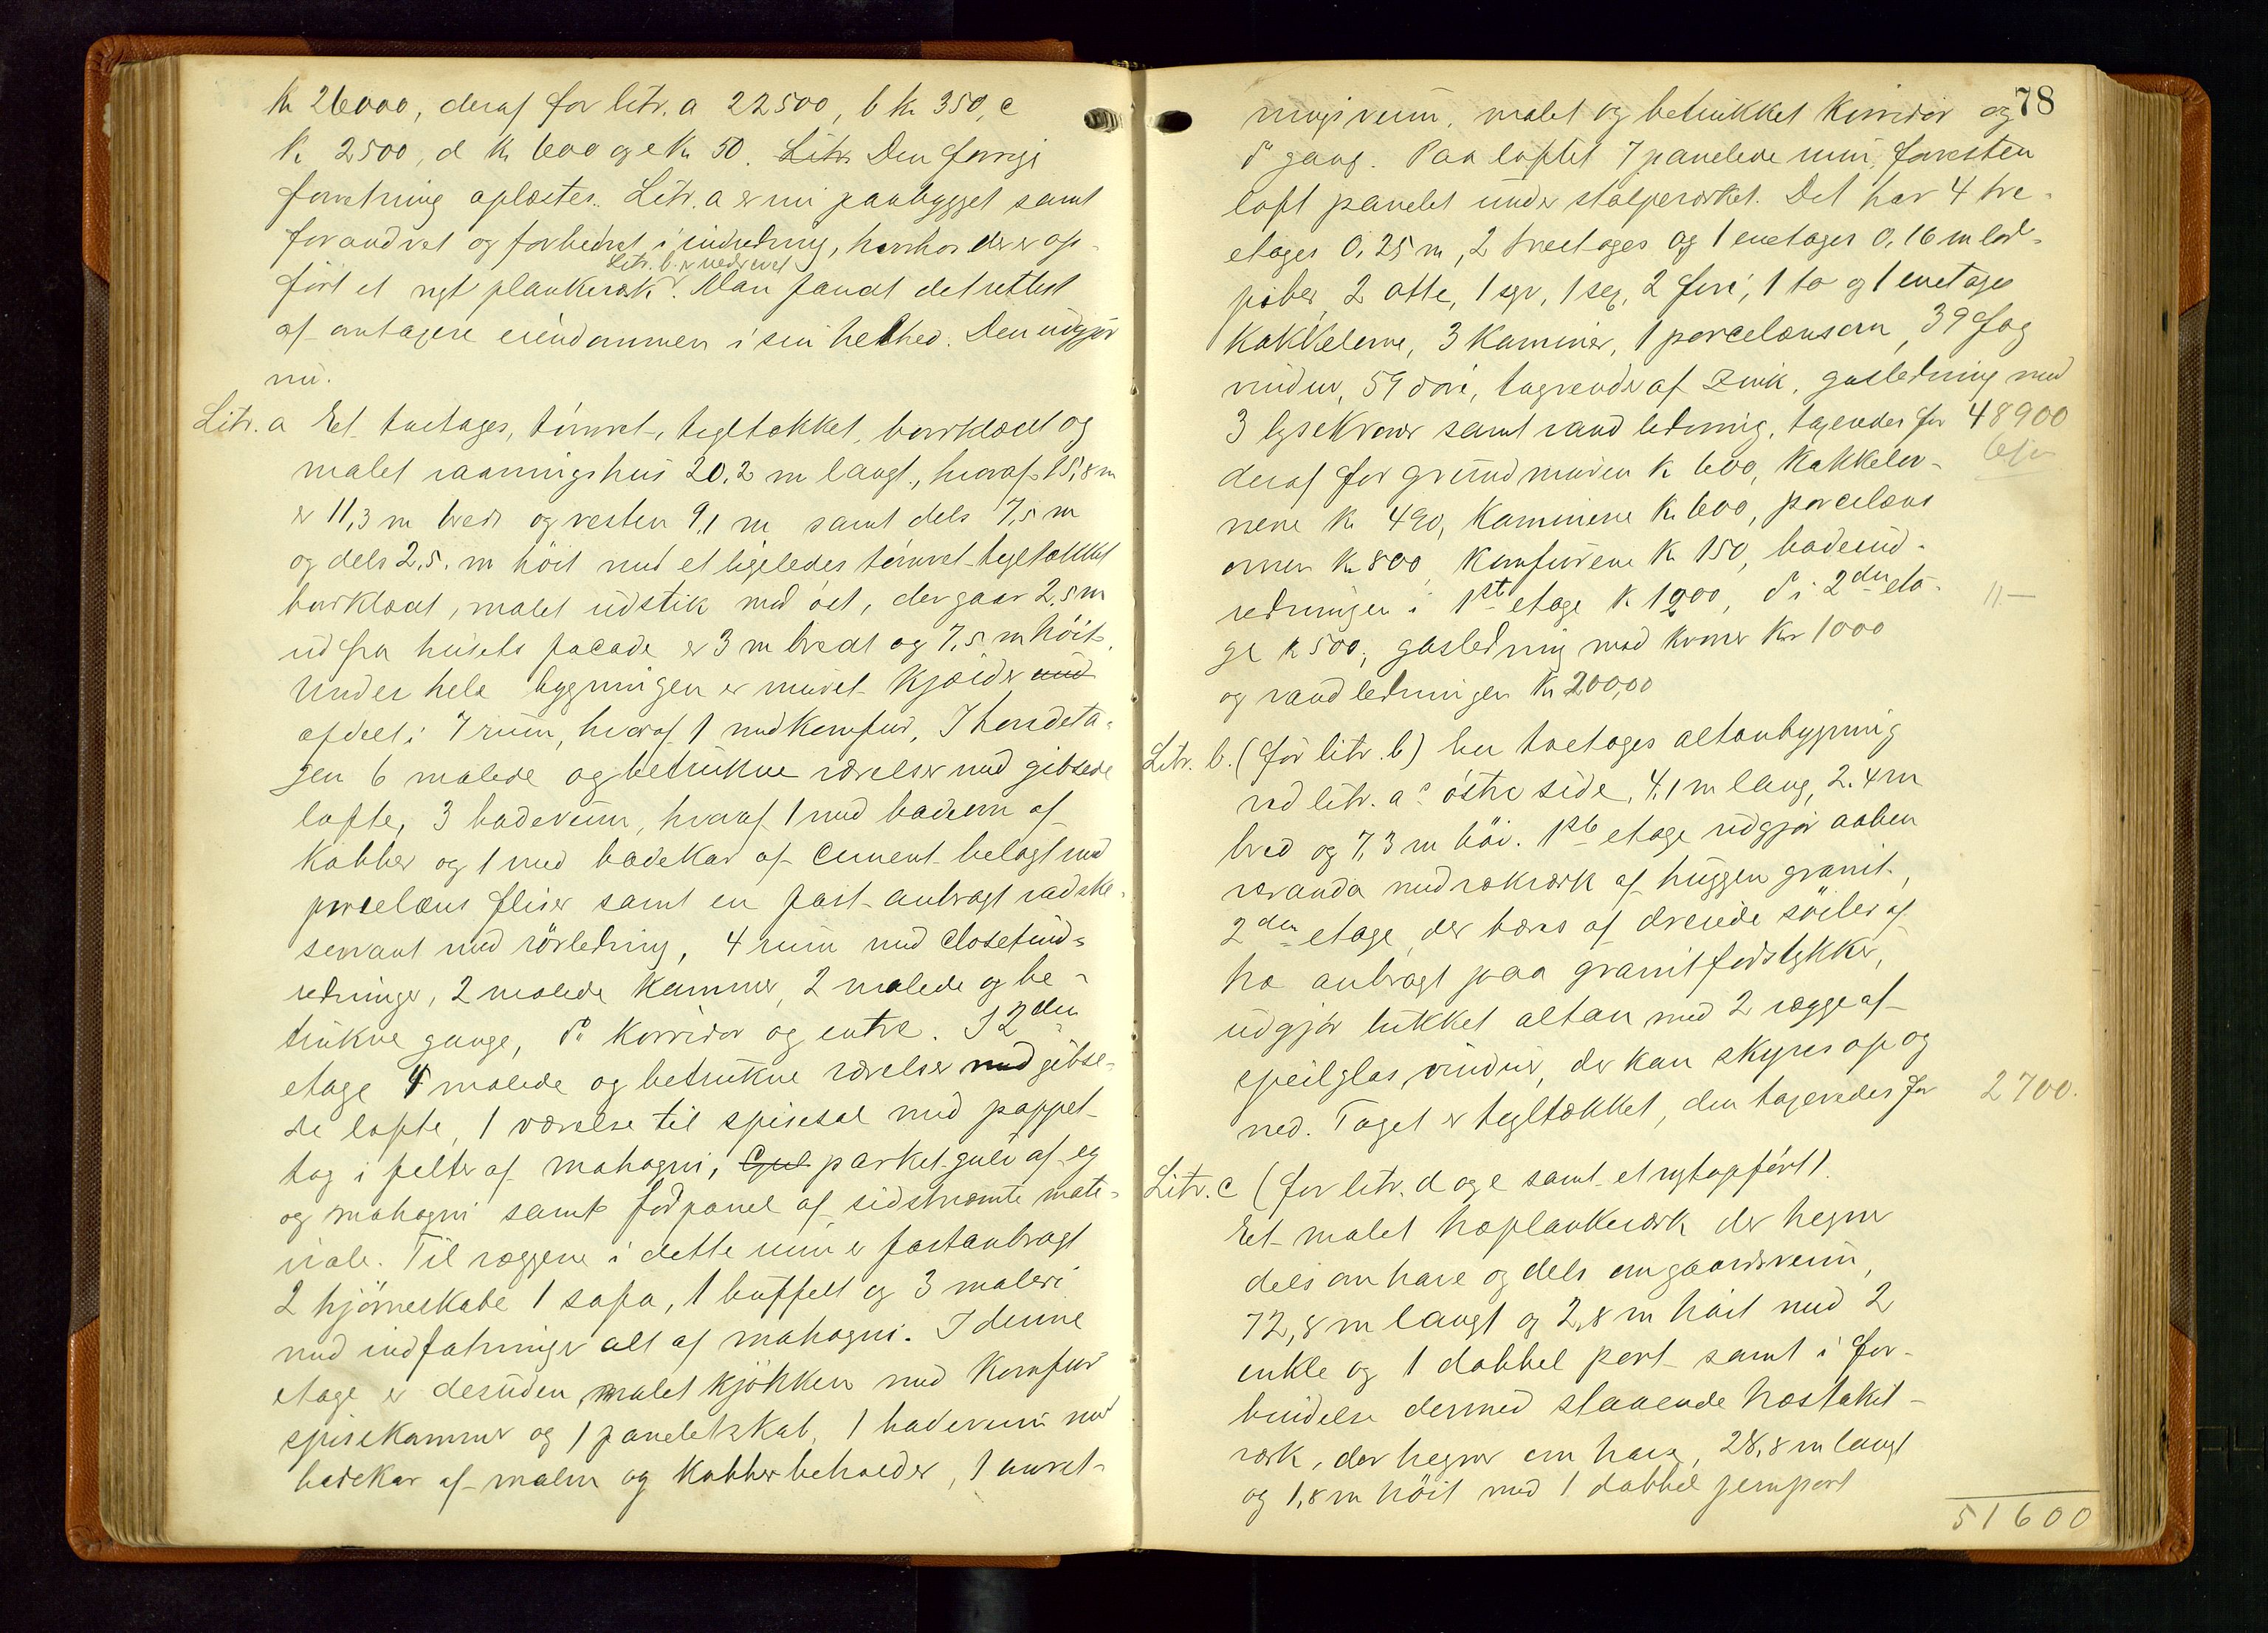 Kr 26000, deraf for litr. a 22500, b Kr 350, c
Kr 2500, d Kr 600 og e Kr 50. Litr. Den forrige
forretning oplæstes. Litr. a er nu paabygget samt
forandret og forbedret i indredning, hvorhos der er op-
Litr. b. er nedrevet
ført et nyt plankeværk. Man fandt det rettest
at omtaxere eiendommen i sin helhed. Den udgjør
nu.
Litr. a Et toetages, tømret, tegltækket, bordklædt og
malet vaaningshus 20,2 m langt, hvoraf 15,8 m
er 11,3 m bredt og resten 9,1 m samt dels 7,5 m
og dels 2,5 m höit med et ligeledes tømret tegltækket
bordklædt, malet udstik mod öst, der gaar 2,5 m
ud fra husets facade er 3 m bredt og 7,5 m höit.
Under hele bygningen er muret Kjælder med
afdelt i 7 rum, hvoraf 1 med Komfur, I hovedeta-
gen 6 malede og betrukne værelser med gibsede
lofte, 3 baderum, hvoraf 1 med badeovn af
Kobber og 1 med badekar af Cement belagt med
porcelæns fliser samt en fast anbragt vadske-
servant med rörledning, 4 rum med Closetind-
redninger, 2 malede Kammer, 2 malede og be-
trukne gange, do Korridor og entre. I 2den
etage 4 malede og betrukne værelser med gibse-
de lofte, 1 værelse til spisesal med pappet
tag i felter af mahogni, Gul parket gulv af eg
og mahogni samt fodpanel af sidstnævnte mate-
riale. Til væggene i dette rum er fastanbragt
2 hjörneskabe 1 sofa, 1 buffett og 3 maleri
med indfatninger alt af mahogni. I denne
etage er desuden malet Kjökken med Komfur
spisekammer og 1 panelet skab, 1 baderum med
badekar af malm og Kobberbeholder, 1 anret-
78
ningsrum, malet og betrukket Korridor og
do gang. Paa loftet 7 panelede rum, forresten
loft panelet under stolpeværket. Det har 4 tre-
etages 0,25 m, 2 treetages og 1 enetages 0,16 m lod-
piber, 2 otte, 1 syv, 1 sex, 2 fire, 1 to og 1 enetages
Kakkelovne, 3 Kaminer, 1 porcelænsovn, 39 fag
vinduer, 59 döre, tagrender af Zink, gasledning med
3 lysekroner samt vand ledning, taxeredes for 48900
deraf for grundmuren Kr 600, Kakkelov-
nene Kr 490, Kaminerne Kr 600, porcelæns
ovnen Kr 800, Komfurene Kr 150, badeind-
redningen i 1ste etage Kr 1200, do i 2den eta- 11 —
ge Kr 500, gasledning med Kroner Kr 1000
og vandledningen Kr 200,00
Litr. b. (för litr. b) En toetages altanbygning
ved litr. a's östre side, 4,1 m lang, 2,4 m
bred og 7,3 m höi. 1ste etage udgjör aaben
veranda med rækværk af huggen granit,
2den etage, der bæres af dreiede söiler af
træ anbragt paa granitfodstykker,
udgjör lukket altan med 2 vægge af
speilglas vinduer, der kan skyves op og
ned. Taget er tegltækket, den taxeredes for 2700.
Litr. c (för litr. d og e samt et nytopført).
Et malet træplankeværk der hegner
dels om have og dels om gaardsrum,
72,8 m langt og 2,8 m höit med 2
enkle og 1 dobbel port samt i for-
bindelse dermed staaende træstaket-
værk, der hegner om have, 28,8 m langt
og 1,8 m höit med 1 dobbel jernport
51600